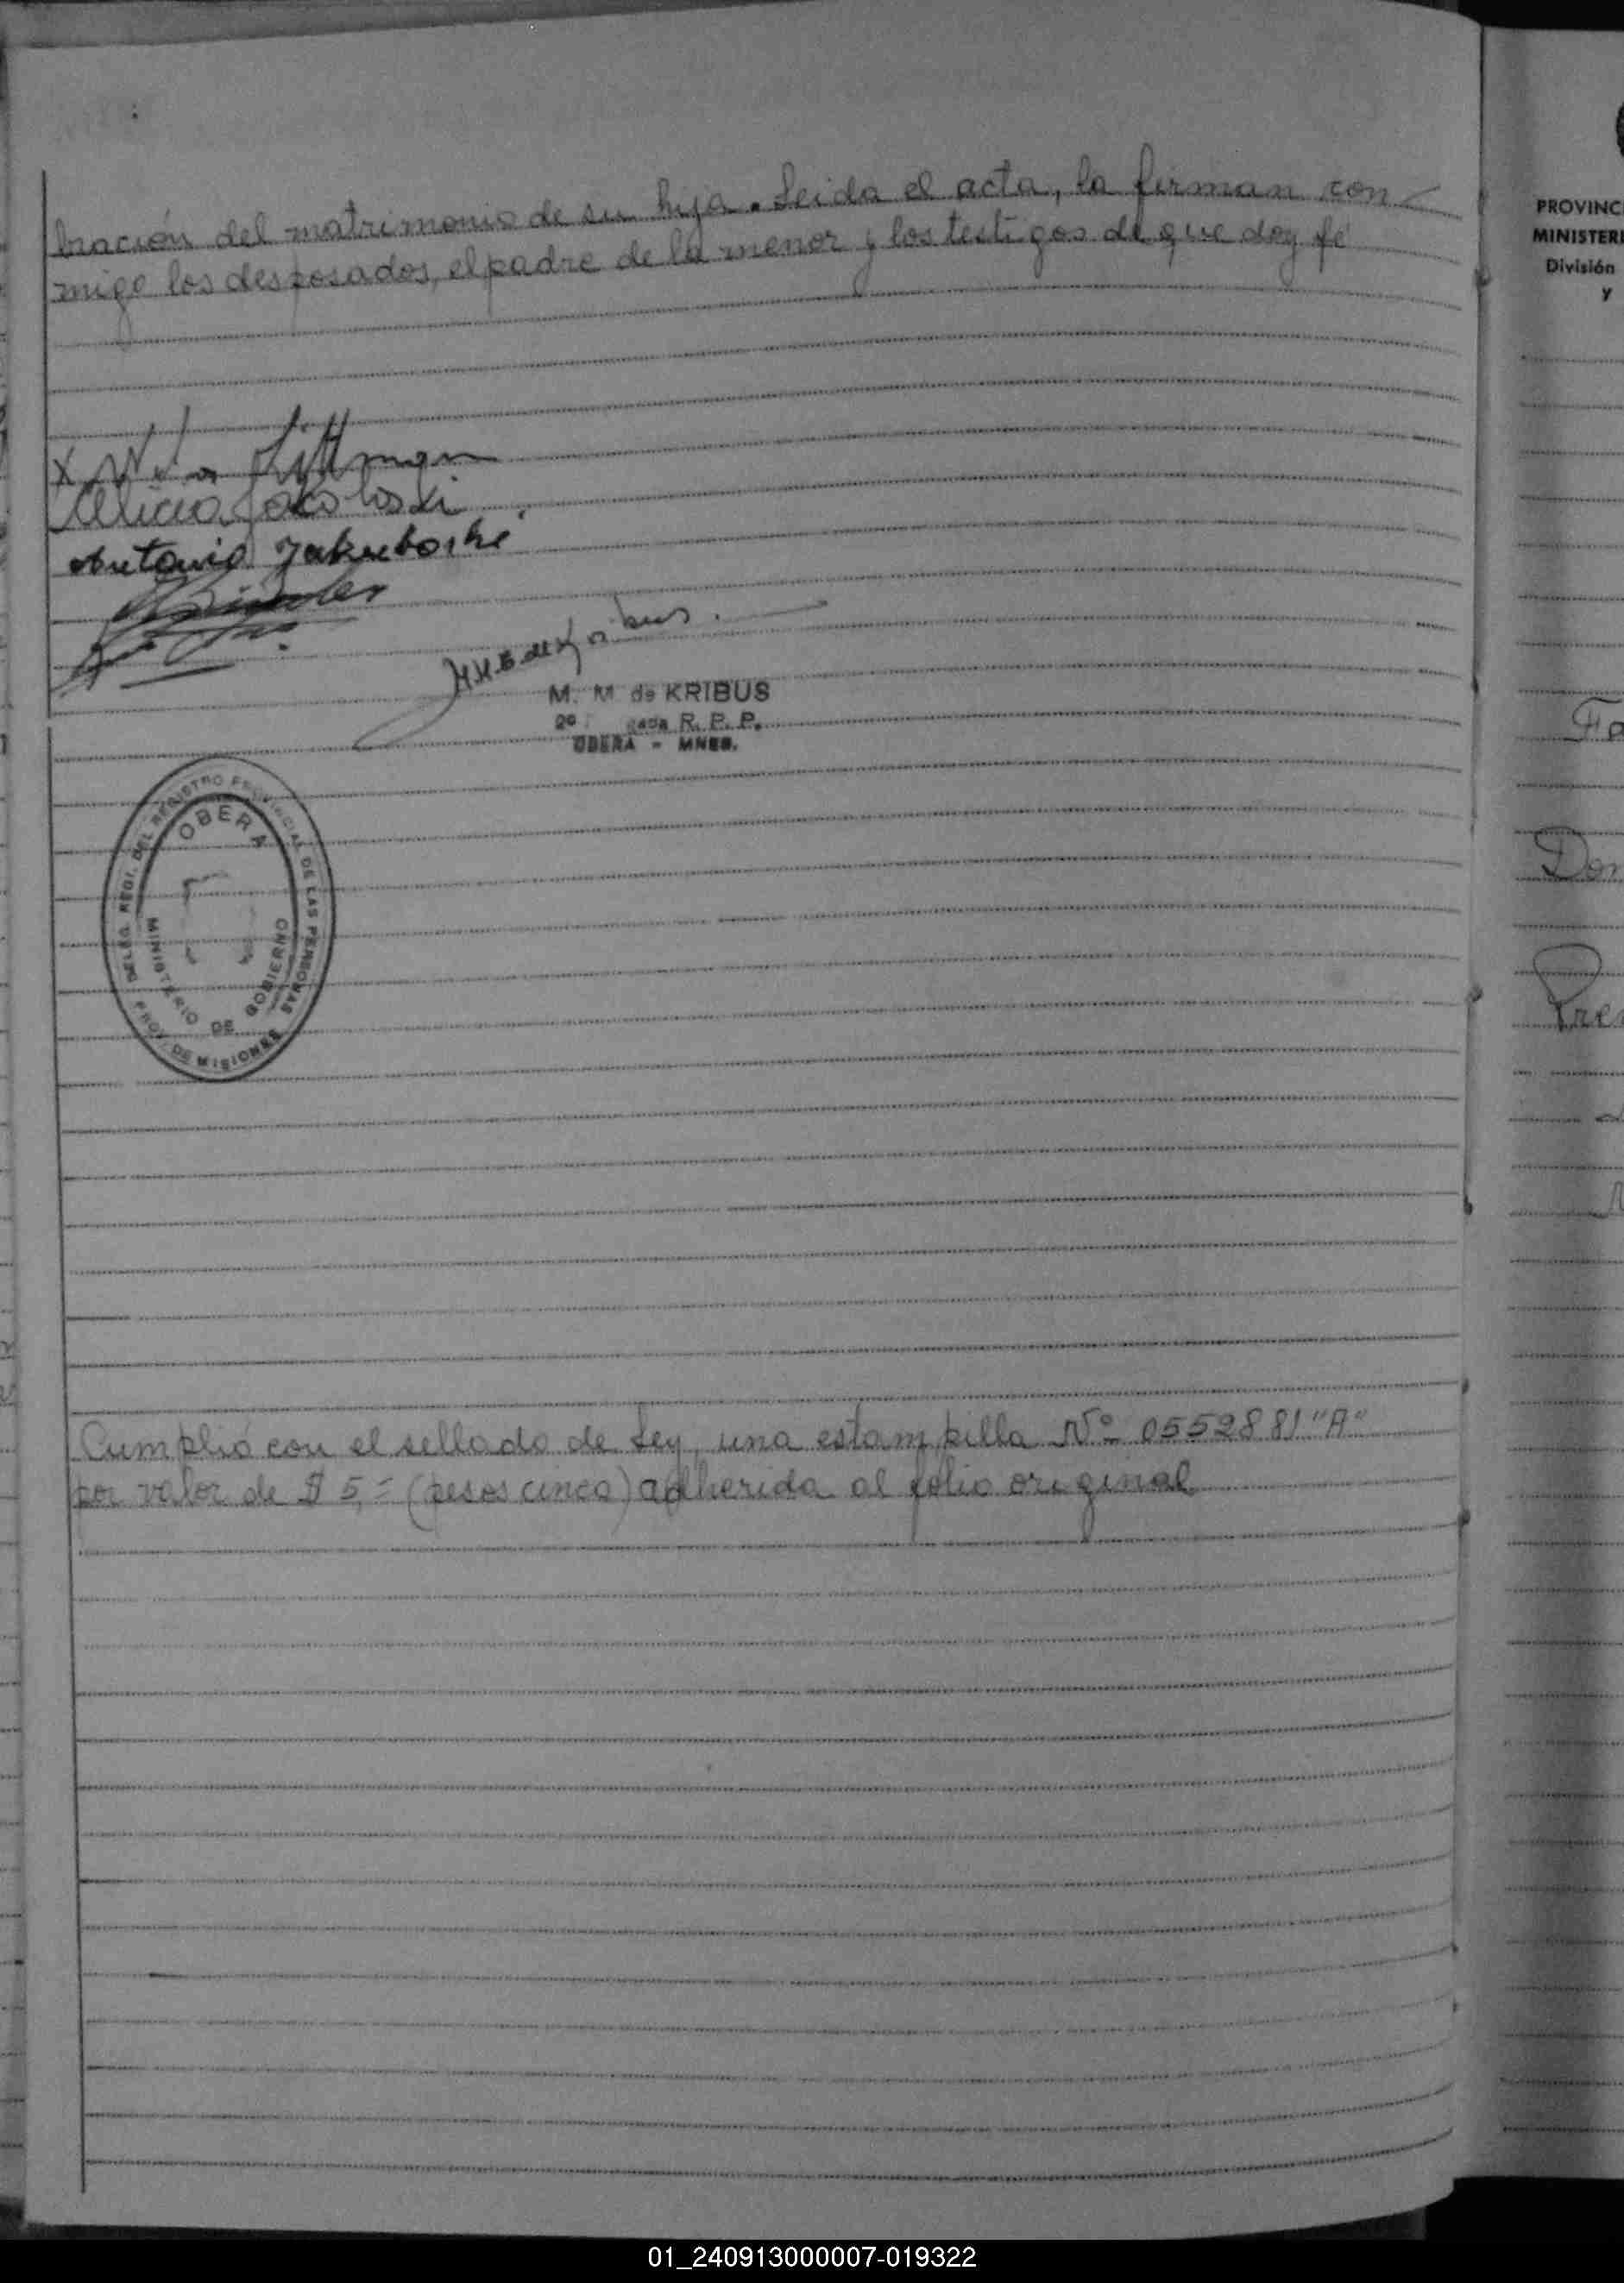 bración del matrimonio de su hija. Leida el acta, la firman con
migo los desposados, el padre de la menor y los testigos de que doy fé
X
Alicia Jacoboski
Antonio Jakuboski
M. M de KRIBUS
R. P. P.
OBERA - MNES.
DELEG. REGI. DEL REGISTRO PROVINCIAL DE LAS PERSONAS
OBERA
MINISTERIO DE GOBIERNO
PROV. DE MISIONES
Cumplió con el sellado de Ley, una estampilla Nº 0552881 "A"
por valor de $ 5,= (pesos cinco) adherida al folio original
PROVINC
MINISTERI
División
y
Fa
Don
Pre
01_240913000007-019322